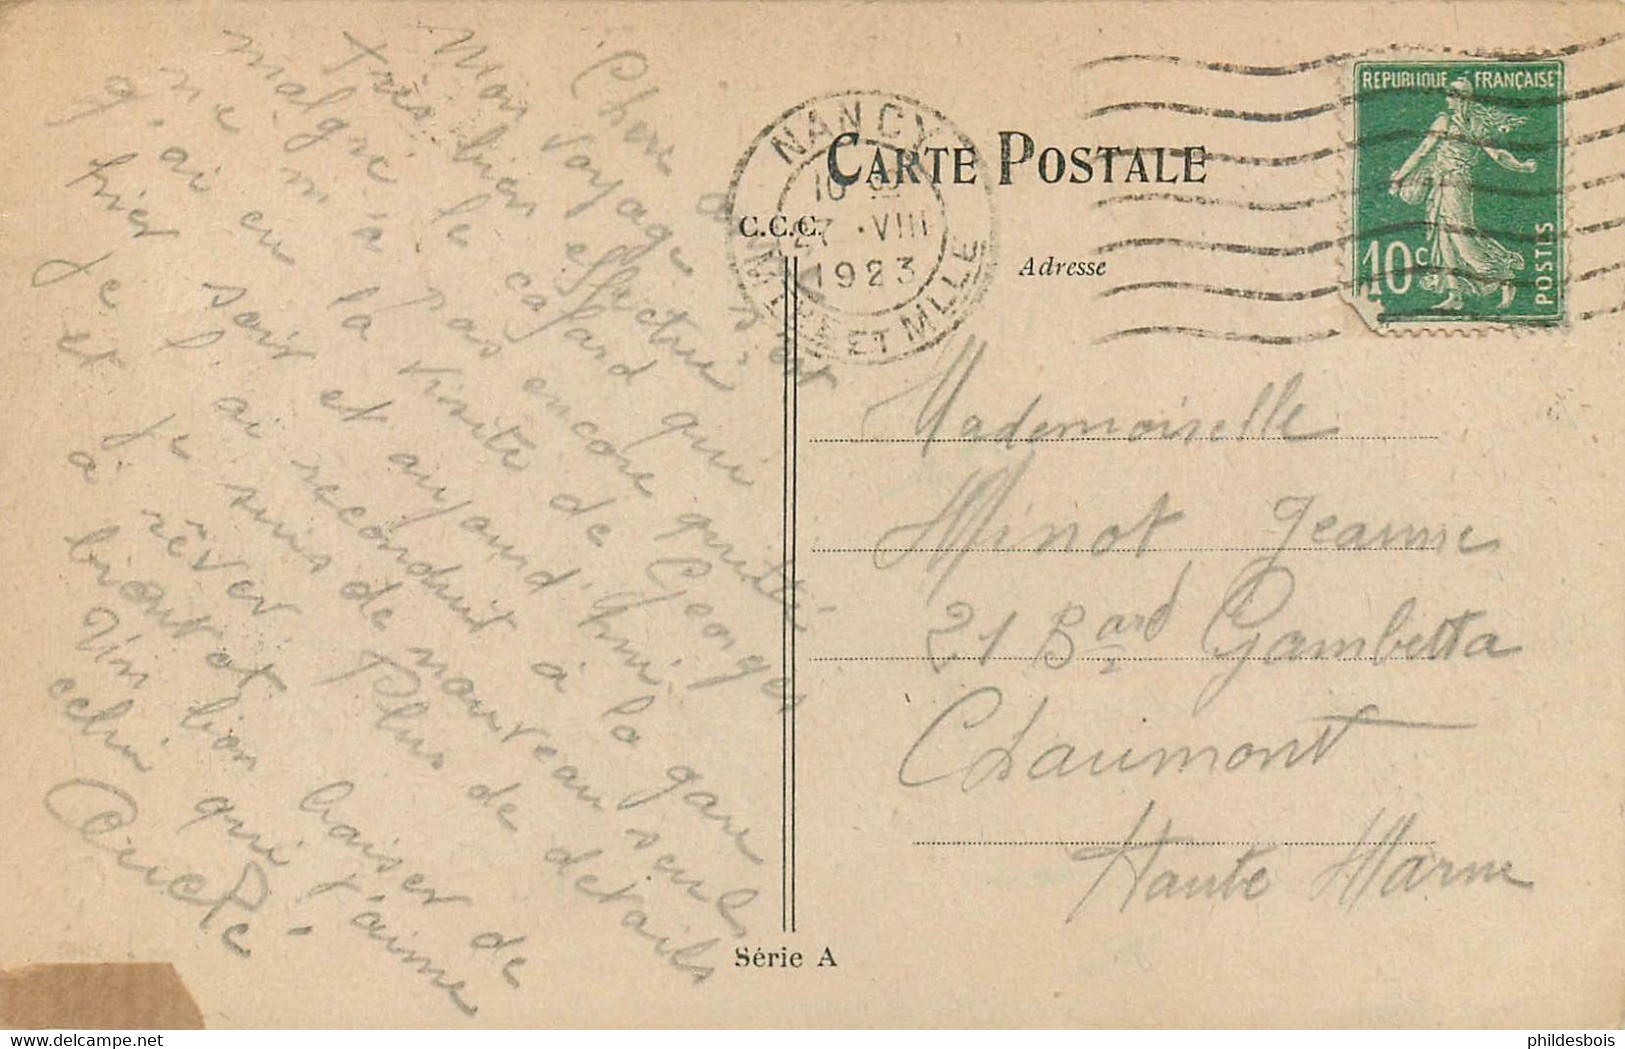 Chère
Mon voyage s'est
très bien effectué
malgré le cafard qui
ne m'a pas encore quitté
q. ai eu la visite de Georges
hier soir et aujourd'hui
je l'ai reconduit à la gare
et je suis de nouveau seul
à rêver. Plus de détails
bientot
Un bon baiser de
celui qui t'aime
NANCY
10
27 . VIII
1923
MTHE ET MLLE
CARTE POSTALE
C.C.C.
Adresse
REPUBLIQUE FRANÇAISE
10c
POSTES
Mademoiselle
Minot Jeanne
21 Bard Gambetta
Chaumont
Haute Marne
Série A
delcampe.net
phildesbois